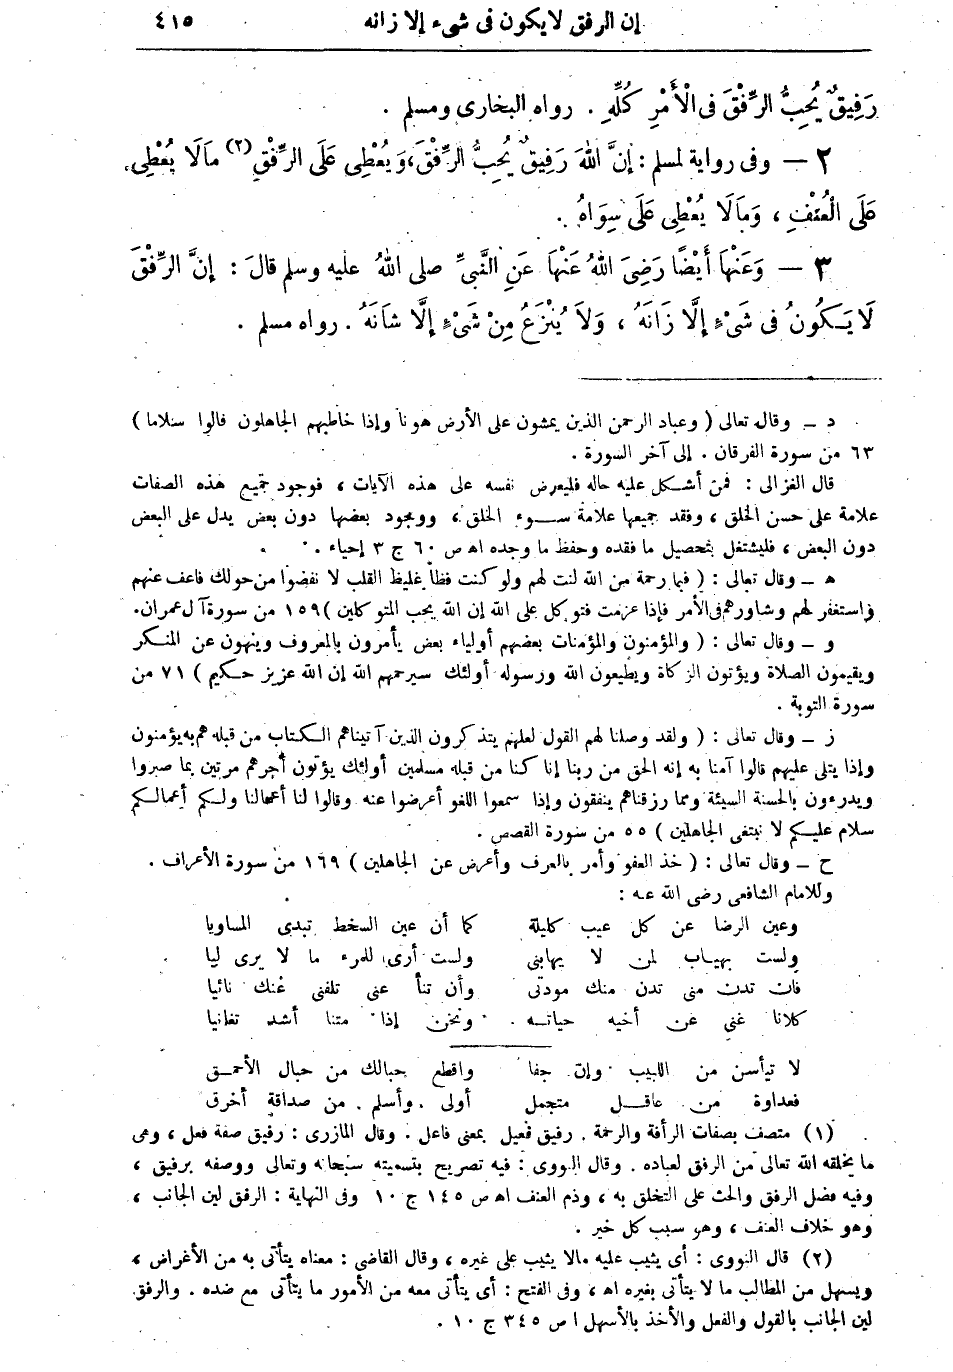 إن الرفق لا يكون فى شىء إلا زانه ٤١٥
رَفِيقٌ يُحِبُّ الرِّفْقَ فى الْأَمْرِ كُلِّهِ . رواه البخارى ومسلم .
٢ — وفى رواية لمسلم : إنَّ اللهَ رَفِيقٌ يُحِبُّ الرِّفْقَ، وَيُعْطِى عَلَى الرِّفْقِ (٢) مَالَا يُعْطِى
عَلَى الْعُنْفِ ، وَمَالَا يُعْطِى عَلَى سِوَاهُ .
٣ — وَعَنْهَا أَيْضًا رَضِىَ اللهُ عَنْهَا عَنِ النَّبِىِّ صلى اللهُ عليه وسلم قالَ : إنَّ الرِّفْقَ
لَا يَكُونُ فى شَىْءٍ إلَّا زَانَهُ ، وَلَا يُنْزَعُ مِنْ شَىْءٍ إلَّا شَانَهُ . رواه مسلم .
د — وقال تعالى ( وعباد الرحمن الذين يمشون على الأرض هونا وإذا خاطبهم الجاهلون قالوا سلاما )
٦٣ من سورة الفرقان . إلى آخر السورة .
قال الغزالى : فمن أشكل عليه حاله فليعرض نفسه على هذه الآيات ، فوجود جميع هذه الصفات
علامة على حسن الخلق ، وفقد جميعها علامة سوء الخلق ، ووجود بعضها دون بعض يدل على البعض
دون البعض ، فليشتغل بتحصيل ما فقده وحفظ ما وجده اه ص ٦٠ ج ٣ إحياء .
ه — وقال تعالى : ( فبما رحمة من الله لنت لهم ولو كنت فظا غليظ القلب لا نفضوا من حولك فاعف عنهم
واستغفر لهم وشاورهم فى الأمر فإذا عزمت فتوكل على الله إن الله يحب المتوكلين ) ١٥٩ من سورة آل عمران.
و — وقال تعالى : ( والمؤمنون والمؤمنات بعضهم أولياء بعض يأمرون بالمعروف وينهون عن المنكر
ويقيمون الصلاة ويؤتون الزكاة ويطيعون الله ورسوله أولئك سيرحمهم الله إن الله عزيز حكيم ) ٧١ من
سورة التوبة .
ز — وقال تعالى : ( ولقد وصلنا لهم القول لعلهم يتذكرون الذين آتيناهم الكتاب من قبله هم به يؤمنون
وإذا يتلى عليهم قالوا آمنا به إنه الحق من ربنا إنا كنا من قبله مسلمين أولئك يؤتون أجرهم مرتين بما صبروا
ويدرءون بالحسنة السيئة ومما رزقناهم ينفقون وإذا سمعوا اللغو أعرضوا عنه وقالوا لنا أعمالنا ولكم أعمالكم
سلام عليكم لا نبتغى الجاهلين ) ٥٥ من سورة القصص .
ح — وقال تعالى : ( خذ العفو وأمر بالعرف وأعرض عن الجاهلين ) ١٦٩ من سورة الأعراف .
وللامام الشافعى رضى الله عنه :
وعين الرضا عن كل عيب كليلة كما أن عين السخط تبدى المساويا
ولست بهياب لمن لا يهابنى ولست أرى للمرء ما لا يرى ليا
فان تدن منى تدن منك مودتى وأن تنأ عنى تلفنى عنك نائيا
كلانا غنى عن أخيه حياته ونحن إذا متنا أشد تغانيا
لا تيأسن من اللبيب وإن جفا واقطع حبالك من حبال الأحمق
فعداوة من عاقل متجمل أولى وأسلم من صداقة أخرق
(١) متصف بصفات الرأفة والرحمة . رفيق فعيل بمعنى فاعل . وقال المازرى : رفيق صفة فعل ، وهى
ما يخلقه الله تعالى من الرفق لعباده . وقال النووى : فيه تصريح بتسميته سبحانه وتعالى ووصفه برفيق ،
وفيه فضل الرفق والحث على التخلق به ، وذم العنف اه ص ١٤٥ ج ١٠ وفى النهاية : الرفق لين الجانب ،
وهو خلاف العنف ، وهو سبب كل خير .
(٢) قال النووى : أى يثيب عليه مالا يثيب على غيره ، وقال القاضى : معناه يتأتى به من الأغراض ،
ويسهل من المطالب ما لا يتأتى بغيره اه ، وفى الفتح : أى يتأتى معه من الأمور ما يتأتى مع ضده . والرفق
لين الجانب بالقول والفعل والأخذ بالأسهل ا ص ٣٤٥ ج ١٠ .